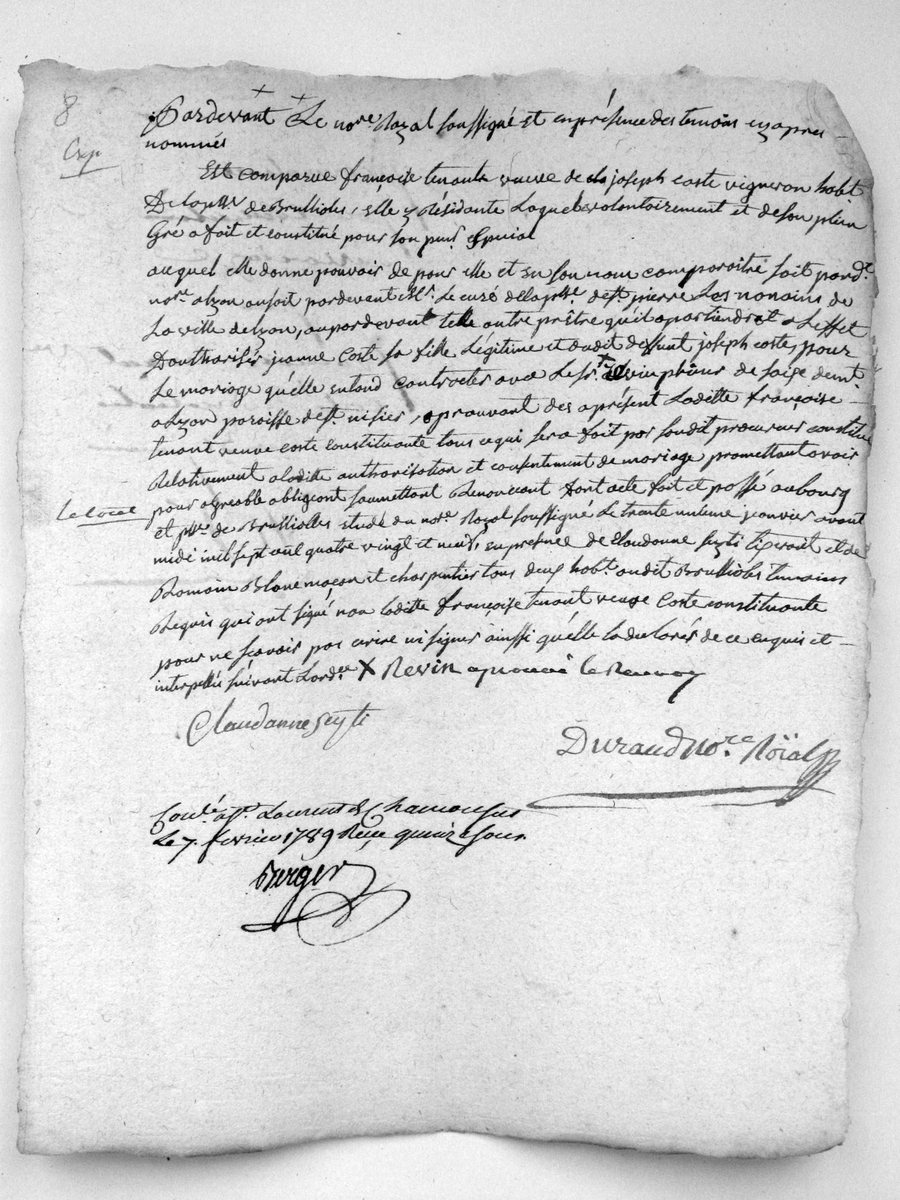 8
Exp
Pardevant Le nore. Royal soussigné et en présence des temoins cy apres
nommés
Est comparue françoise tenante veuve de joseph coste vigneron habt.
De la psse de Brullioles, elle y Résidante Laquelle volontairement et de son plein
Gré a fait et constitué pour son pur. spécial
auquel elle donne pouvoir de pour elle et en son nom comparoitre soit pard.
nore. a lyon ou soit pardevant Mr. Le curé de la psse de st. pierre Les nonains de
La ville de lyon, ou pardevant telle autre prêtre qu'il apartiendrat a L'effet
D'authoriser jeanne Coste sa fille Légitime et dudit deffunt joseph coste, pour
Le mariage qu'elle entend contracter avec Le sr. de soize demt.
a Lyon paroisse de st. nisier, aprouvant des aprésent Laditte françoise
tenant veuve coste constituante tous ce qui sera fait par sondit procureur constitué
Relativement a laditte authorisation et consentement de mariage promettant avoir
pour agreable obligeant soumettant Renoncant dont acte fait et passé au bourg
Le local
et psse de Brullioles etude du nore. Royal soussigné Le trante unieme janvier avant
midi mil sept cent quatre vingt et neuf, en presence de Claudanne Seyti et de
Romain Blanc maçon et charpentier tous deux habt. audit Brullioles temoins
Requis qui ont signé non laditte françoise tenant veuve Coste constituante
pour ne scavoir pas ecrire ni signer ainssi qu'elle la declarés de ce enquis et
interpellé suivant Lordce X Revin aprouvé le Renvoy
Claudanne Seyti
Durand Nore Roïal
Conlé. a St. Laurent de Chamousset
Le 7. fevrier 1789 Reçu quinze sous.
Berger